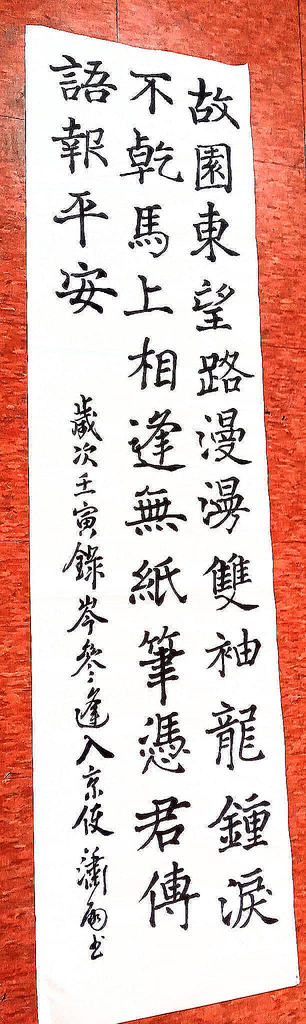 故園東望路漫漫雙袖龍鍾淚
不乾馬上相逢無紙筆憑君傳
語報平安
歲次壬寅錄岑參逢入京使 瀟雨書